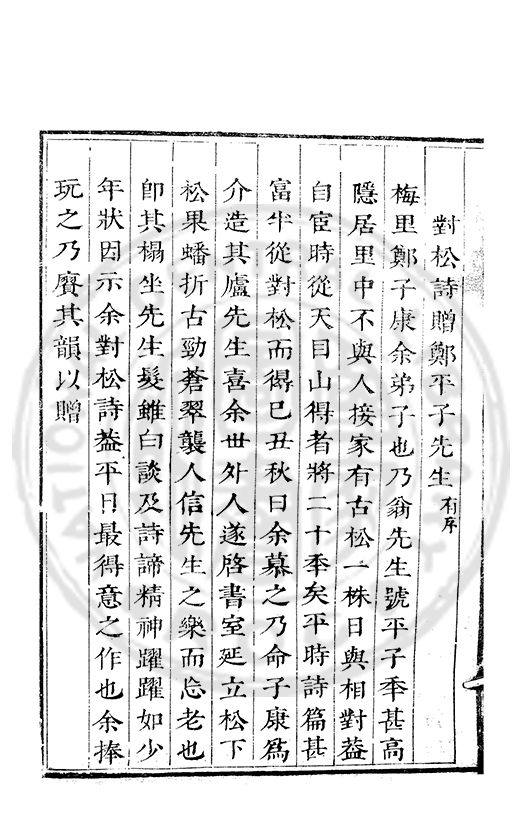 對松詩贈鄭平子先生有序
梅里鄭子康余弟子也乃翁先生號平子秊甚高
隱居里中不與人接家有古松一株日與相對葢
自宦時從天目山得者將二十秊矣平時詩篇甚
富半從對松而得己丑秋日余慕之乃命子康爲
介造其廬先生喜余世外人遂啓書室延立松下
松果蟠折古勁蒼翠襲人信先生之樂而忘老也
卽其榻坐先生髮雖白談及詩諦精神躍躍如少
年狀因示余對松詩葢平日最得意之作也余捧
玩之乃賡其韻以贈